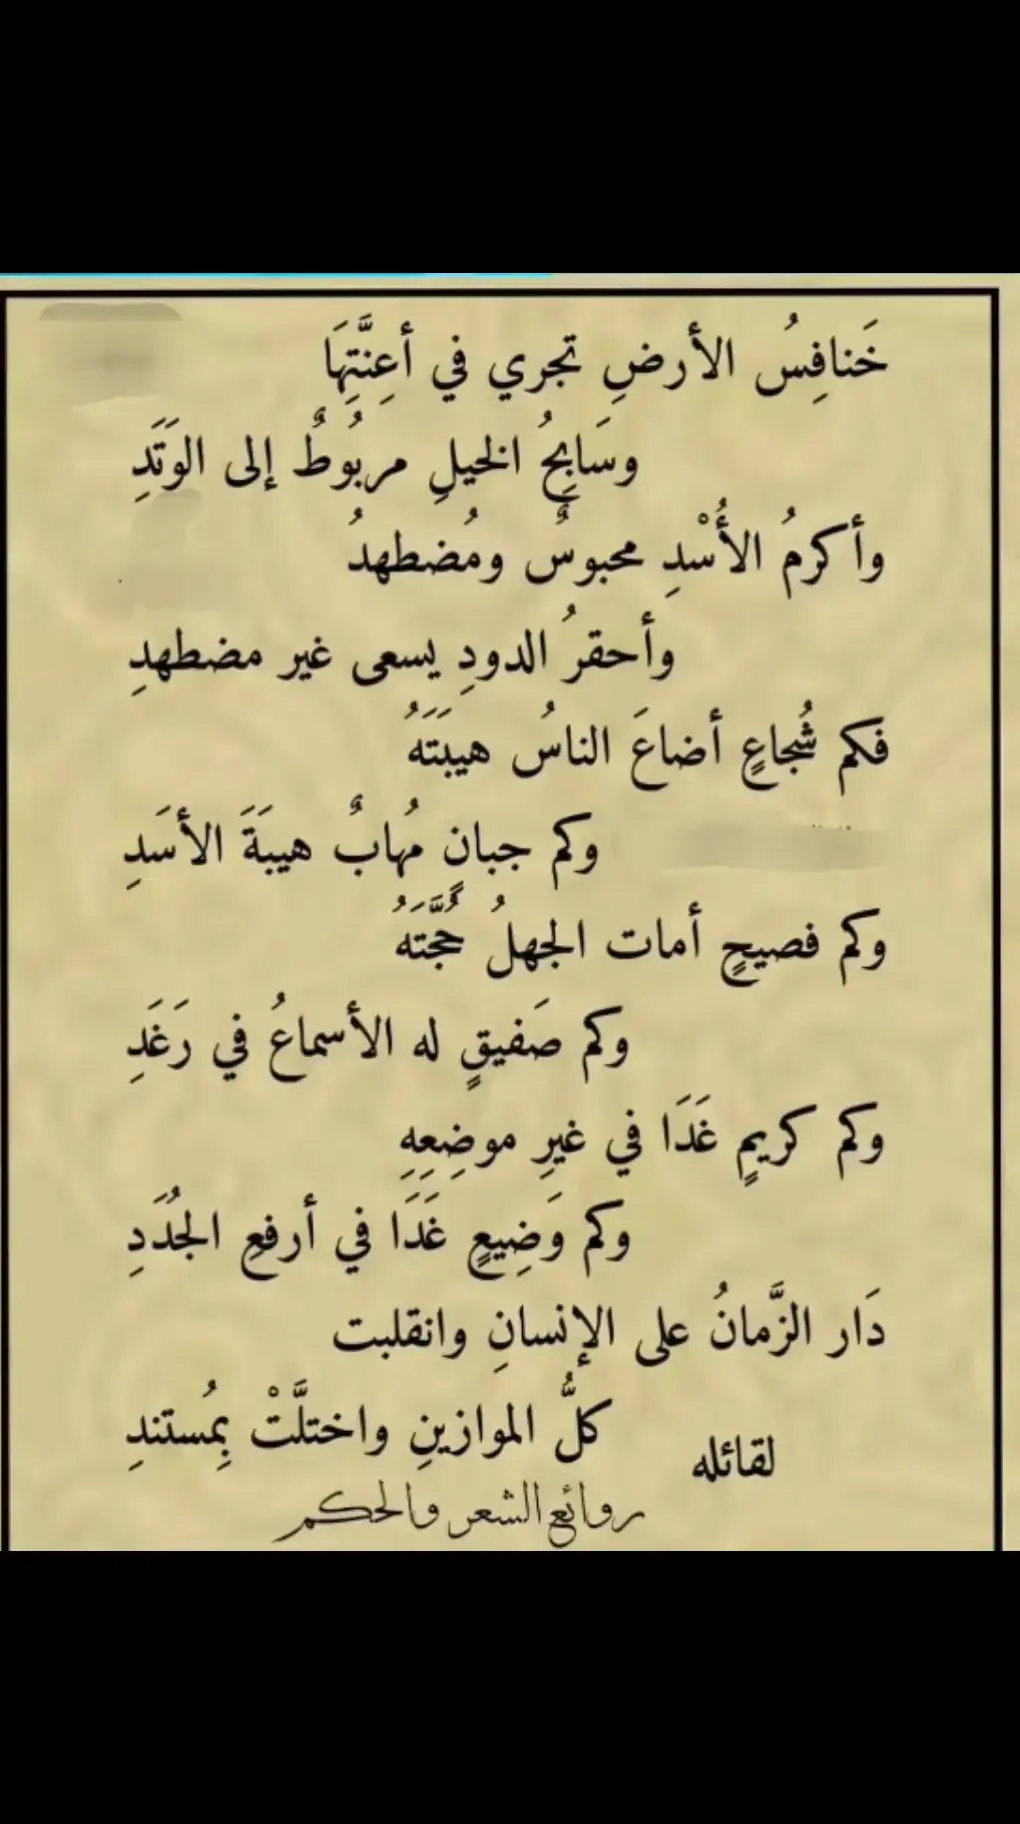 خَنافِسُ الأرضِ تجري في أعِنَّتِهَا
وسَابِحُ الخيلِ مربُوطٌ إلى الوَتَدِ
وأكرمُ الأُسْدِ محبوسٌ ومُضطهدُ
وأحقرُ الدودِ يسعى غير مضطهدِ
فكم شُجاعٍ أضاعَ الناسُ هيبَتَهُ
وكم جبانٍ مُهابٌ هيبَةَ الأسَدِ
وكم فصيحٍ أمات الجهلُ حُجَّتَهُ
وكم صَفيقٍ له الأسماعُ في رَغَدِ
وكم كريمٍ غَدَا في غيرِ موضِعِهِ
وكم وَضِيعٍ غَدَا في أرفعِ الجُدَدِ
دَار الزَّمانُ على الإنسانِ وانقلبت
كلُّ الموازينِ واختلَّتْ بِمُستندِ
لقائله
روائع الشعر والحكم